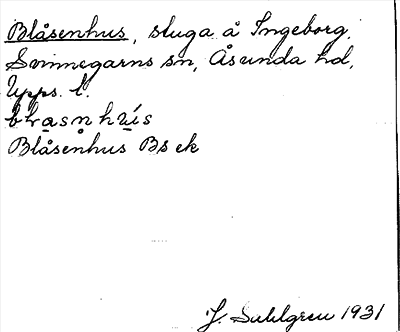 Blåsenhus, stuga å Ingeborg,
Svinnegarns sn, Åsunda hd,
Upps. l.
Blåsenhus Bs ek
J. Sahlgren 1931